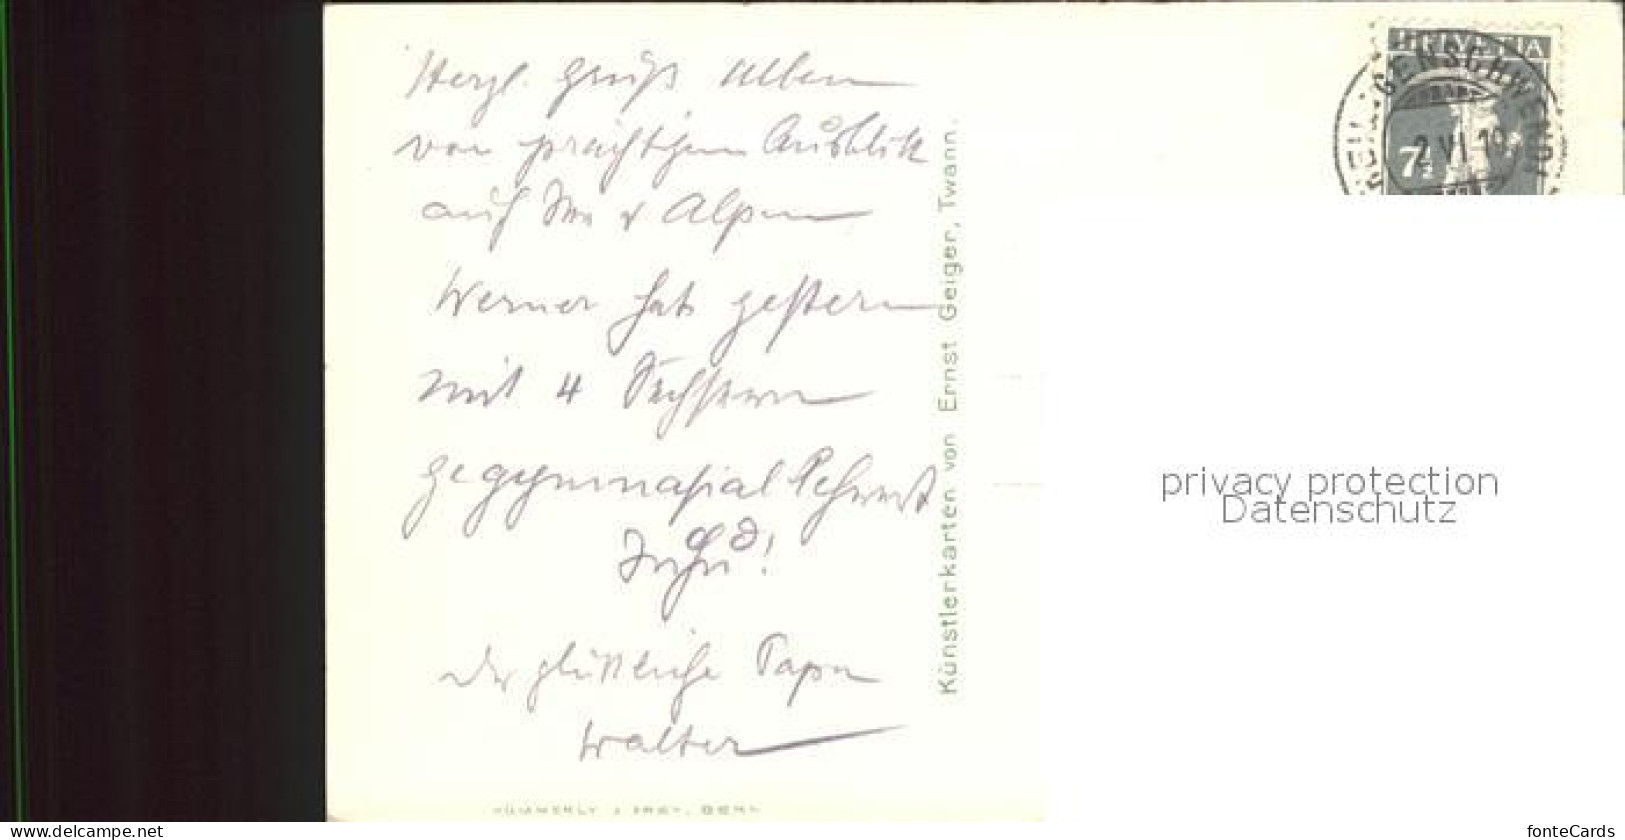 Herzl. Gruß Allen
von prächtigem Ausblick
auf See & Alpen
Werner hat gestern
mit 4 Sechsern
Der glückliche Papa
Walter
Künstlerkarten von Ernst Geiger, Twann.
KÜMMERLY & FREY, BERN
HELVETIA
HEILIGENSCHWENDI
2 VI 19
7½
privacy protection
Datenschutz
www.ansichtskarten-center.de
fonteCards